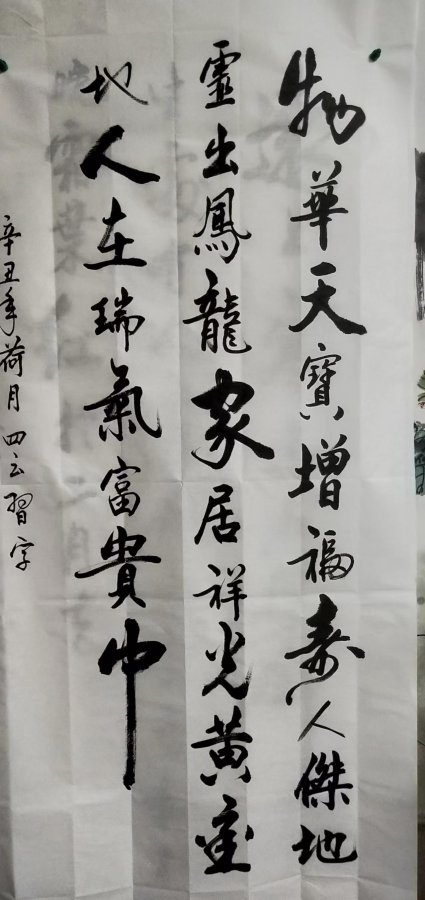 物華天寶增福壽人傑地
靈出鳳龍家居祥光黄金
地人在瑞氣富貴中
辛丑年荷月四云習字